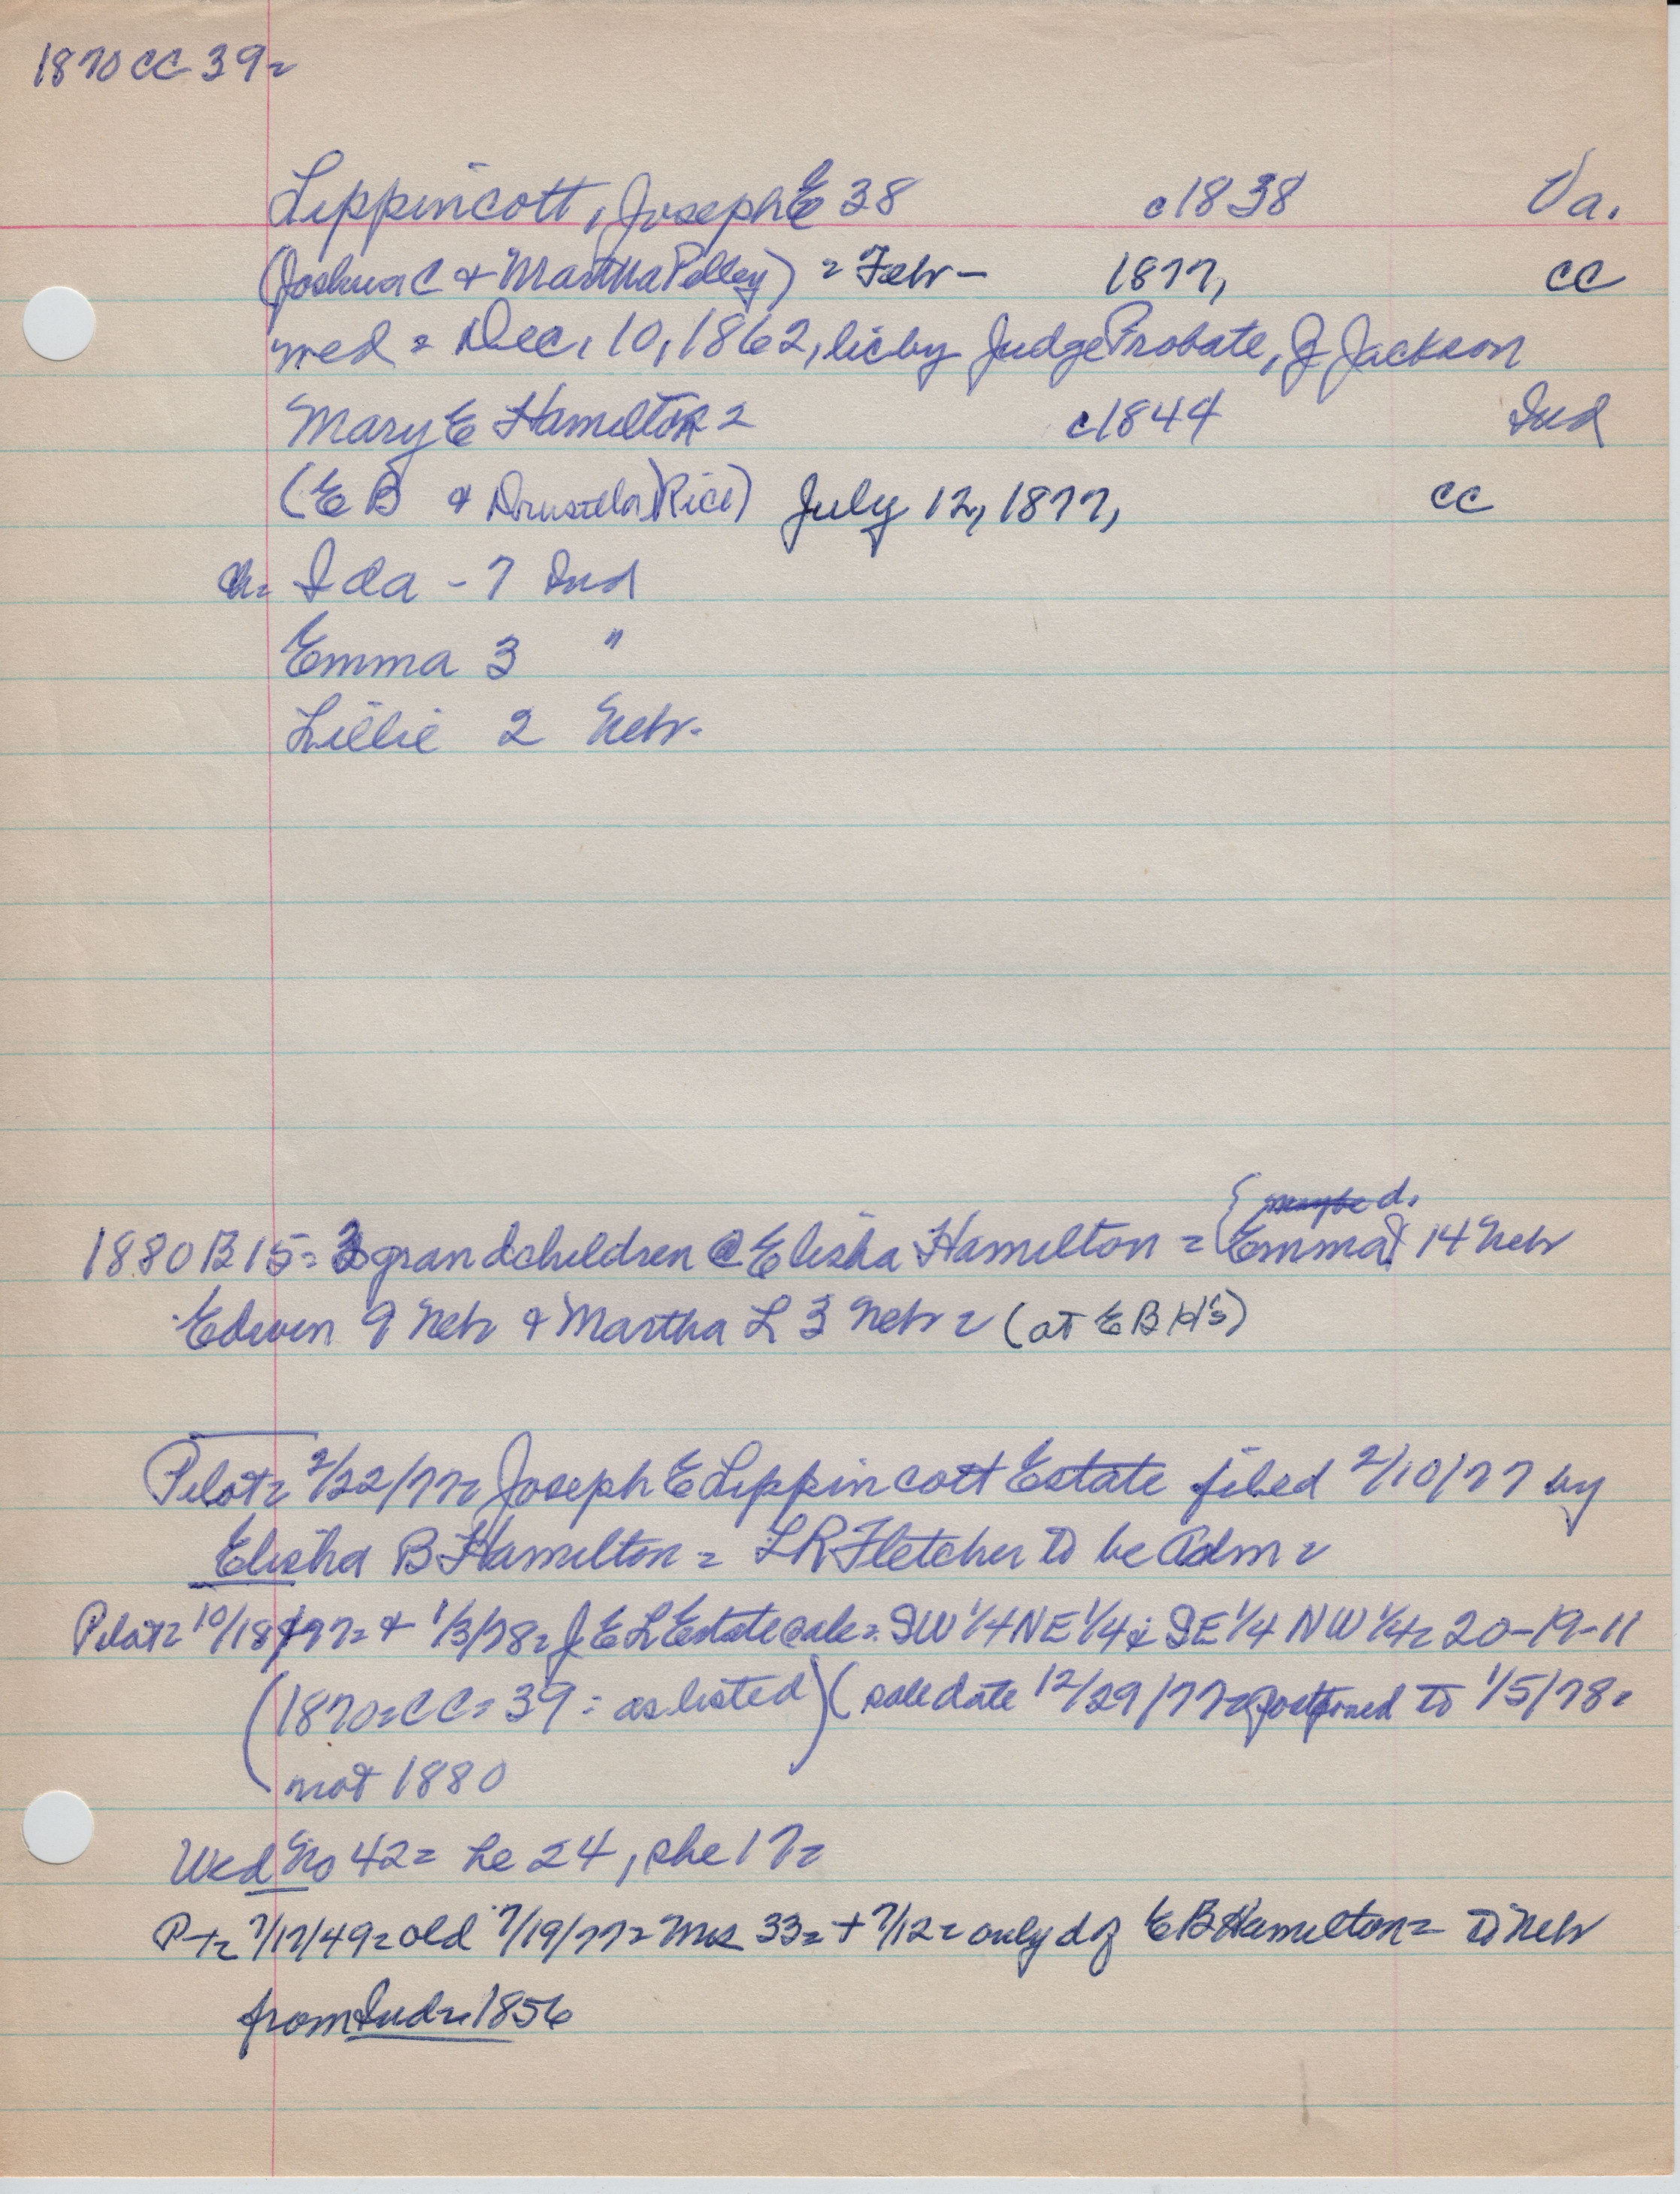 1870 CC 39=
Lippincott, Joseph E 38 c1838 Va.
(Joshua C + Martha Pelley) = Febr - 1877, CC
wed = Dec, 10, 1862, lic by Judge Probate, J Jackson
Mary E Hamilton = c1844 Ind
(E B & Drusilla) Rice) July 12, 1877, CC
ch= Ida - 7 Ind
Emma 3 "
Lillie 2 Nebr.
{ maybe d.
1880 B 15 = 3 grandchildren @ Elisha Hamilton = {Emma? 14 Nebr
Edwin 9 Nebr & Martha L 3 Nebr = (at E B H's)
Pilot= 2/22/77= Joseph E Lippincott Estate filed 2/10/77 by
Elisha B Hamilton = L R Fletcher to be Adm=
Pilot= 10/18/77= + 1/3/78= J E L Estate sale = SW 1/4 NE 1/4 & SE 1/4 NW 1/4= 20-19-11
(1870=CC=39 = as listed) (sale date 12/29/77= postponed to 1/5/78=
not 1880
Wed No 42= he 24, she 17=
P+= 7/17/49= old 7/19/77= Mrs 33= + 7/12= only d of E B Hamilton= to Nebr
from Ind= 1856